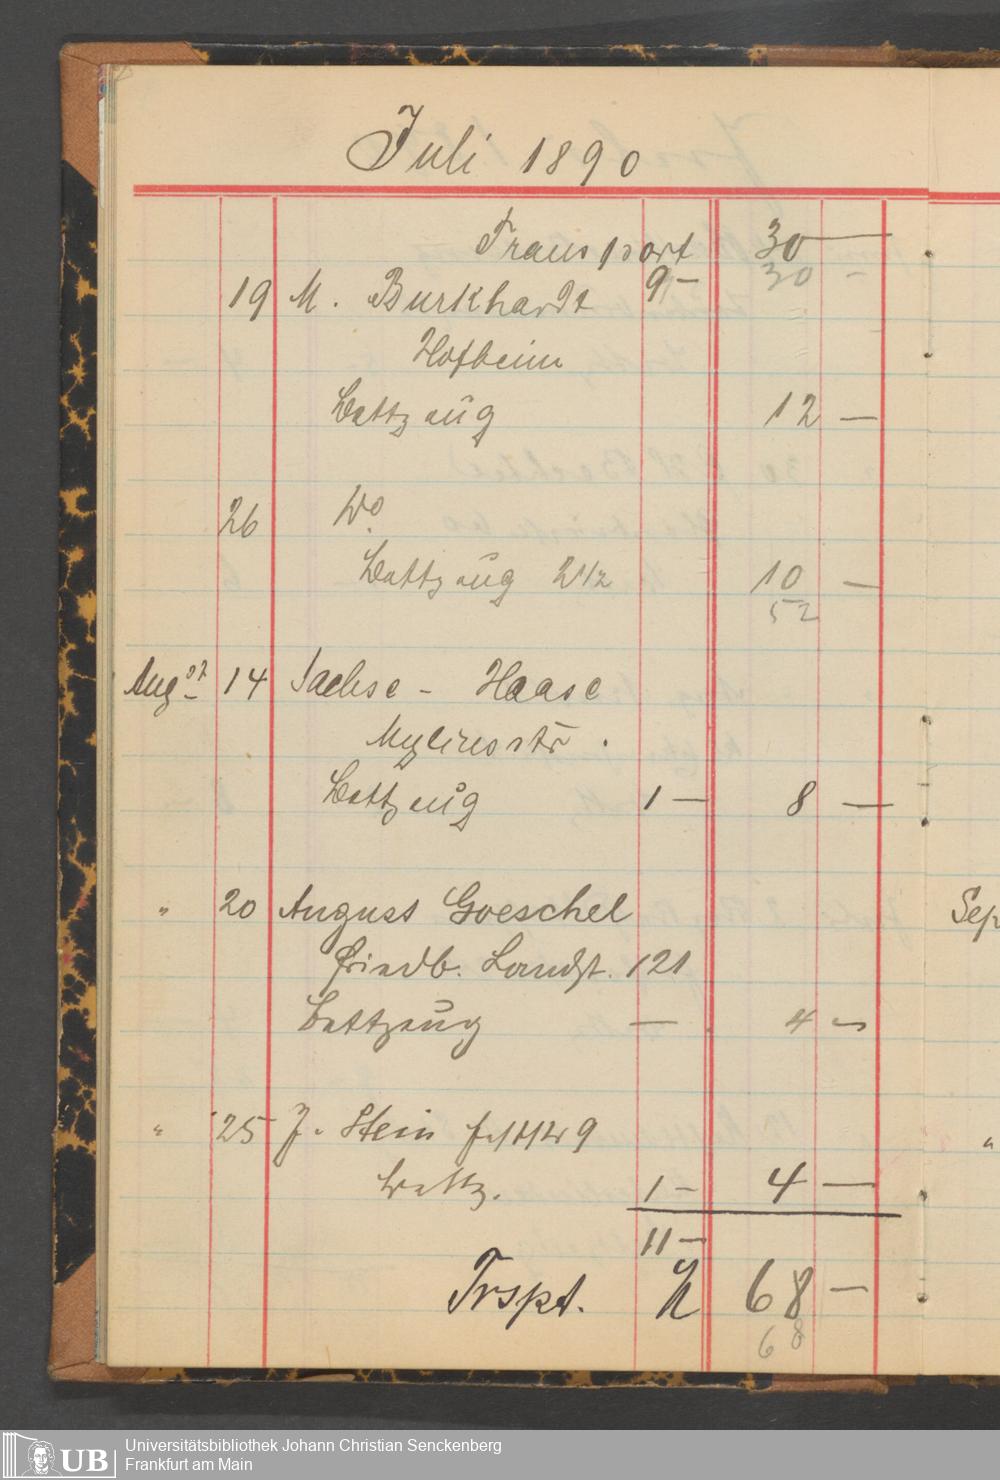 Juli 1890
Transport 30 —
9 — 30 —
19 M. Burkhardt
Hofheim
Bettzeug 12 —
26 Do
Bettzeug 2 1/2 10 —
52
Aug. 14 Sachse - Haase
Myliusstr.
Bettzeug 1 — 8 —
" 20 August Goeschel
Friedb. Landst. 121
Bettzeug — 4 —
" 25 J. Stein 9
Bettz. 1 — 4 —
11 —
Trspt. 68 —
68
Sep
"
UB
Universitätsbibliothek Johann Christian Senckenberg
Frankfurt am Main